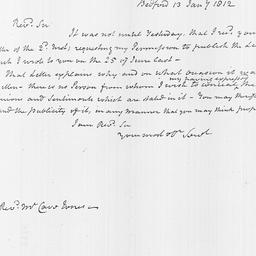 Bedford 13 Jany 1812
Revd. Sir
It was not until Yesterday, that I recd. your
of the 2d. Inst; requesting my Permission to publish the
I wrote to you on the 25 of June last—
That Letter explains why and on what occasion it was
there is no Person from whom I wish to conceal the
having expressed
and Sentiments which are stated in it— You may
the publicity of it, in any manner that you may think
I am Revd. Sir
Your most Obt. Servt
Revd. Mr